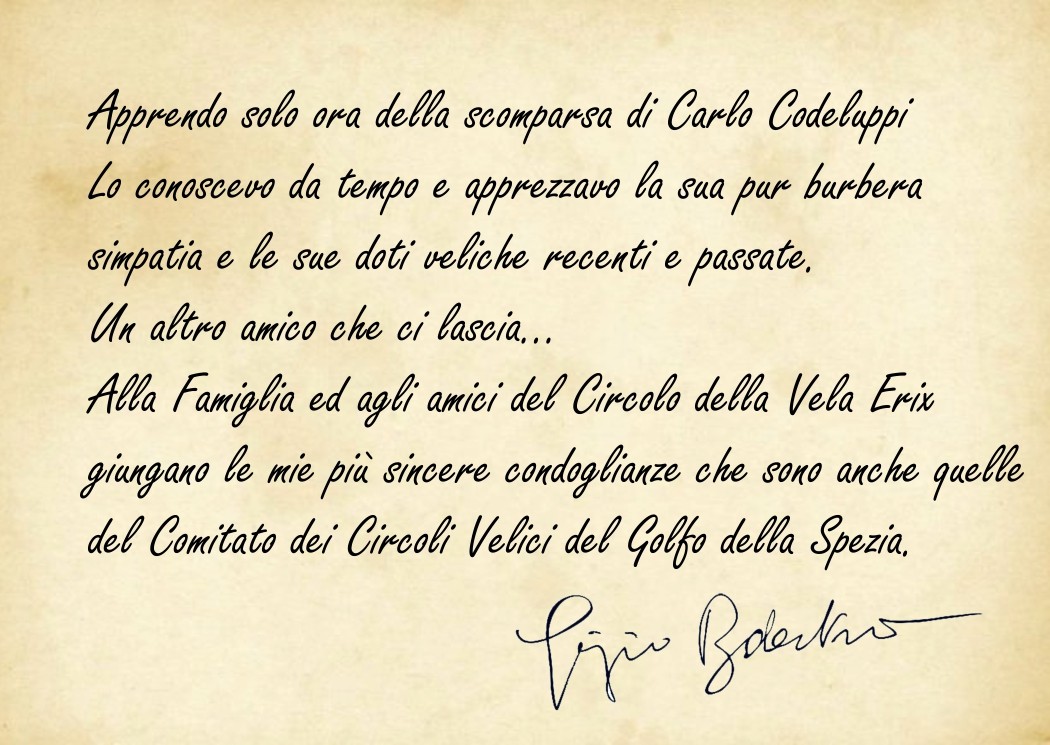 Apprendo solo ora della scomparsa di Carlo Codeluppi
Lo conoscevo da tempo e apprezzavo la sua pur burbera
simpatia e le sue doti veliche recenti e passate.
Un altro amico che ci lascia...
Alla Famiglia ed agli amici del Circolo della Vela Erix
giungano le mie più sincere condoglianze che sono anche quelle
del Comitato dei Circoli Velici del Golfo della Spezia.